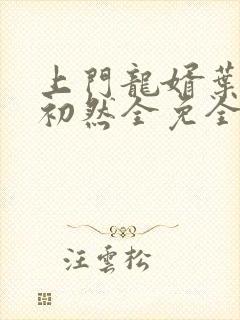 上門龍婿葉
初然全免全
汪雲松